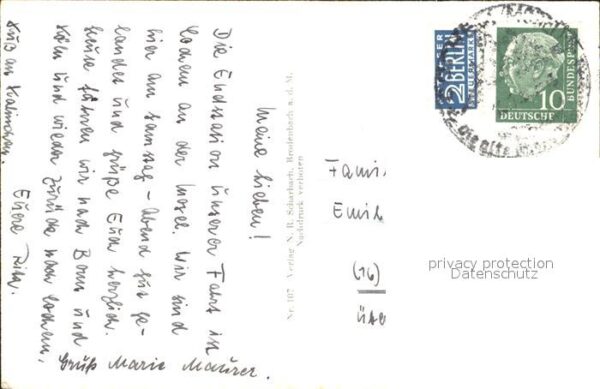 Meine Lieben!
Die Endstation unserer Fahrt ist
Cochem an der Mosel. Wir sind
hier am Samstag-Abend gut ge-
landet und grüße Euch herzlich.
Heute fahren wir nach Bonn und
Köln und wieder zurück nach Cochem.
Gruß an
Euere Rita.
Gruß Marie Maurer.
Nr. 107 Verlag N. R. Scharbach, Brodenbach a. d. M.
Nachdruck verboten
2 BERLIN
STEUERMARKE
10
DEUTSCHE
BUNDESPOST
die alte
Fami
Emil
(16)
privacy protection
Datenschutz